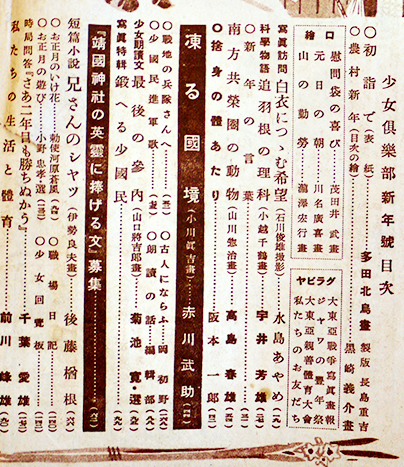 少女倶樂部新年號目次
◎初詣で(表紙)……多田北烏畫 製版 長島重吉
◎農村新年(目次の繪)……黒崎義介畫
口繪
慰問袋の喜び……茂田井武畫
元日の朝……川名廣喜畫
山の勤勞……瀧澤宏行畫
グラビヤ
大東亞戰爭寫眞畫報
ジャワの豐年祭
大東亞親善體育大會
私たちのお友だち
寫眞訪問 白衣につゝむ希望(石川俊雄撮影)……水島あやめ
科學物語 追羽根の理科(小越千鶴畫)……宇井芳雄
◎新年の言葉
南方共榮圏の動物(山川惣治畫)……高島春雄
◎捨身の體あたり……阪本一郎
凍る國境(小川眞吉畫)……赤川武助
◎戰地の兵隊さんへ
◎古人にならふ……岡初野
◎少國民進軍歌
◎朗讀の話……編輯部
少女朗讀文 最後の參內(山口將吉郎畫)……菊池寛選
寫眞特輯 鍛へる少國民
『靖國神社の英靈に捧げる文』募集
短篇小說 兄さんのシャツ(伊勢良夫畫)……後藤楢根
◎お正月のいけ花……勅使河原蒼風
◎職場日記……千葉愛雄
◎お正月の遊び……小野忠孝選
◎少女回覽板
時局問答『さあ二年目も勝ちぬかう』
私たちの生活と體育……前川峰雄